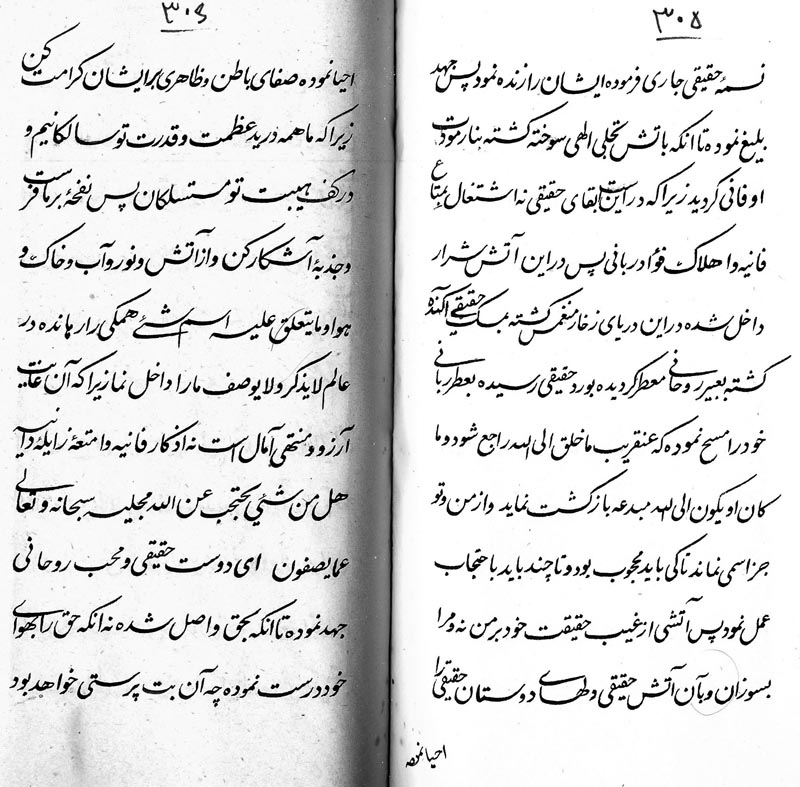 ۳۰۵
نسمهٔ حقیقی جاری فرموده ایشان را زنده نمود پس جهد
بلیغ نموده تا انکه باتش تجلی الهی سوخته کشته بنار مودت
او فانی کردید زیرا که در این است بقای حقیقی نه اشتغال بمتاع
فانیه و اهلاک فؤاد ربانی پس در این آتش شرار
داخل شده در این دریای زخار منغمس کشته بمسک حقیقی اکنده
کشته بعبیر روحانی معطر کردیده بورد حقیقی رسیده بعطر ربانی
خود را مسح نموده که عنقریب ما خلق الی الله راجع شود و ما
کان او یکون الی الله مبدعه بازکشت نماید و از من و تو
جز اسمی نماند تا کی باید محجوب بود و تا چند باید باحتجاب
عمل نمود پس آتشی از غیب حقیقت خود بر من نه و مرا
بسوزان و بآن آتش حقیقی ولهای دوستان حقیقی را
احیا نموده
۳۰۶
احیا نموده صفای باطن و ظاهری برایشان کرامت کن
زیرا که ما همه در ید عظمت و قدرت تو سالکانیم و
در کف هیبت تو مستسلکان پس نفحهٔ بر ما فرست
و جذبهٔ آشکار کن و از آتش و نور و آب و خاک و
هوا و ما یتعلق علیه اسم شیٔ همکی را رهانده در
عالم لا یذکر و لا یوصف ما را داخل نما زیرا که آن غایت
آرزو و منتهی آمال است نه اذکار فانیه و امتعهٔ زایلهٔ دانیه
هل من شیٔ یحتجب عن الله مجلیه سبحانه و تعالی
عما یصفون ای دوست حقیقی و محب روحانی
جهد نموده تا انکه بحق واصل شده نه انکه حق را بهوای
خود درست نموده چه آن بت پرستی خواهد بود